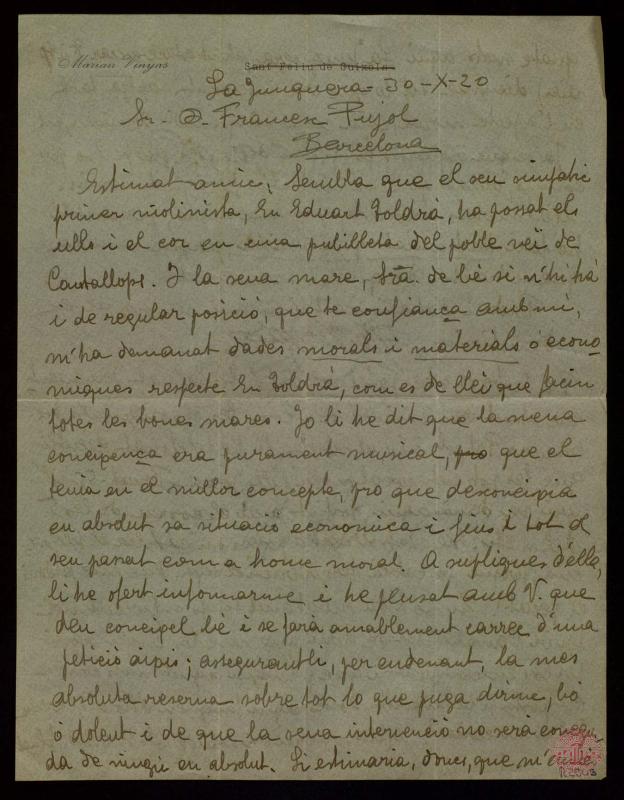 Marian Vinyas
Sant Feliu de Guíxols
La Junquera - 30-X-20
Sr. D. Francesc Pujol
Barcelona
Estimat amic; Sembla que el seu simpatic
primer violinista, En Eduart Toldrá, ha posat els
ulls i el cor en una pubilleta del poble veí de
Cantallops. I la seua mare, Sra. de bé si n'hi há
i de regular posició, que te confiança amb mi,
m'ha demanat dades morals i materials o econo
miques respecte En Toldrá, com es de llei que facin
totes les bones mares. Jo li he dit que la meua
coneixença era purament musical, pro que el
tenia en el millor concepte, pro que desconeixia
en absolut sa situació economica i fins i tot el
seu passat com a home moral. A supliques d'ella,
li he ofert informarme i he pensat amb V. que
deu coneixel bé i se fará amablement carrec d'una
petició aixis; assegurantli, per endevant, la mes
absoluta reserva sobre tot lo que puga dirme, bó
ó dolent i de que la seua intervenció no será conegu
da de ningú en absolut. Li estimaria, doncs, que m'